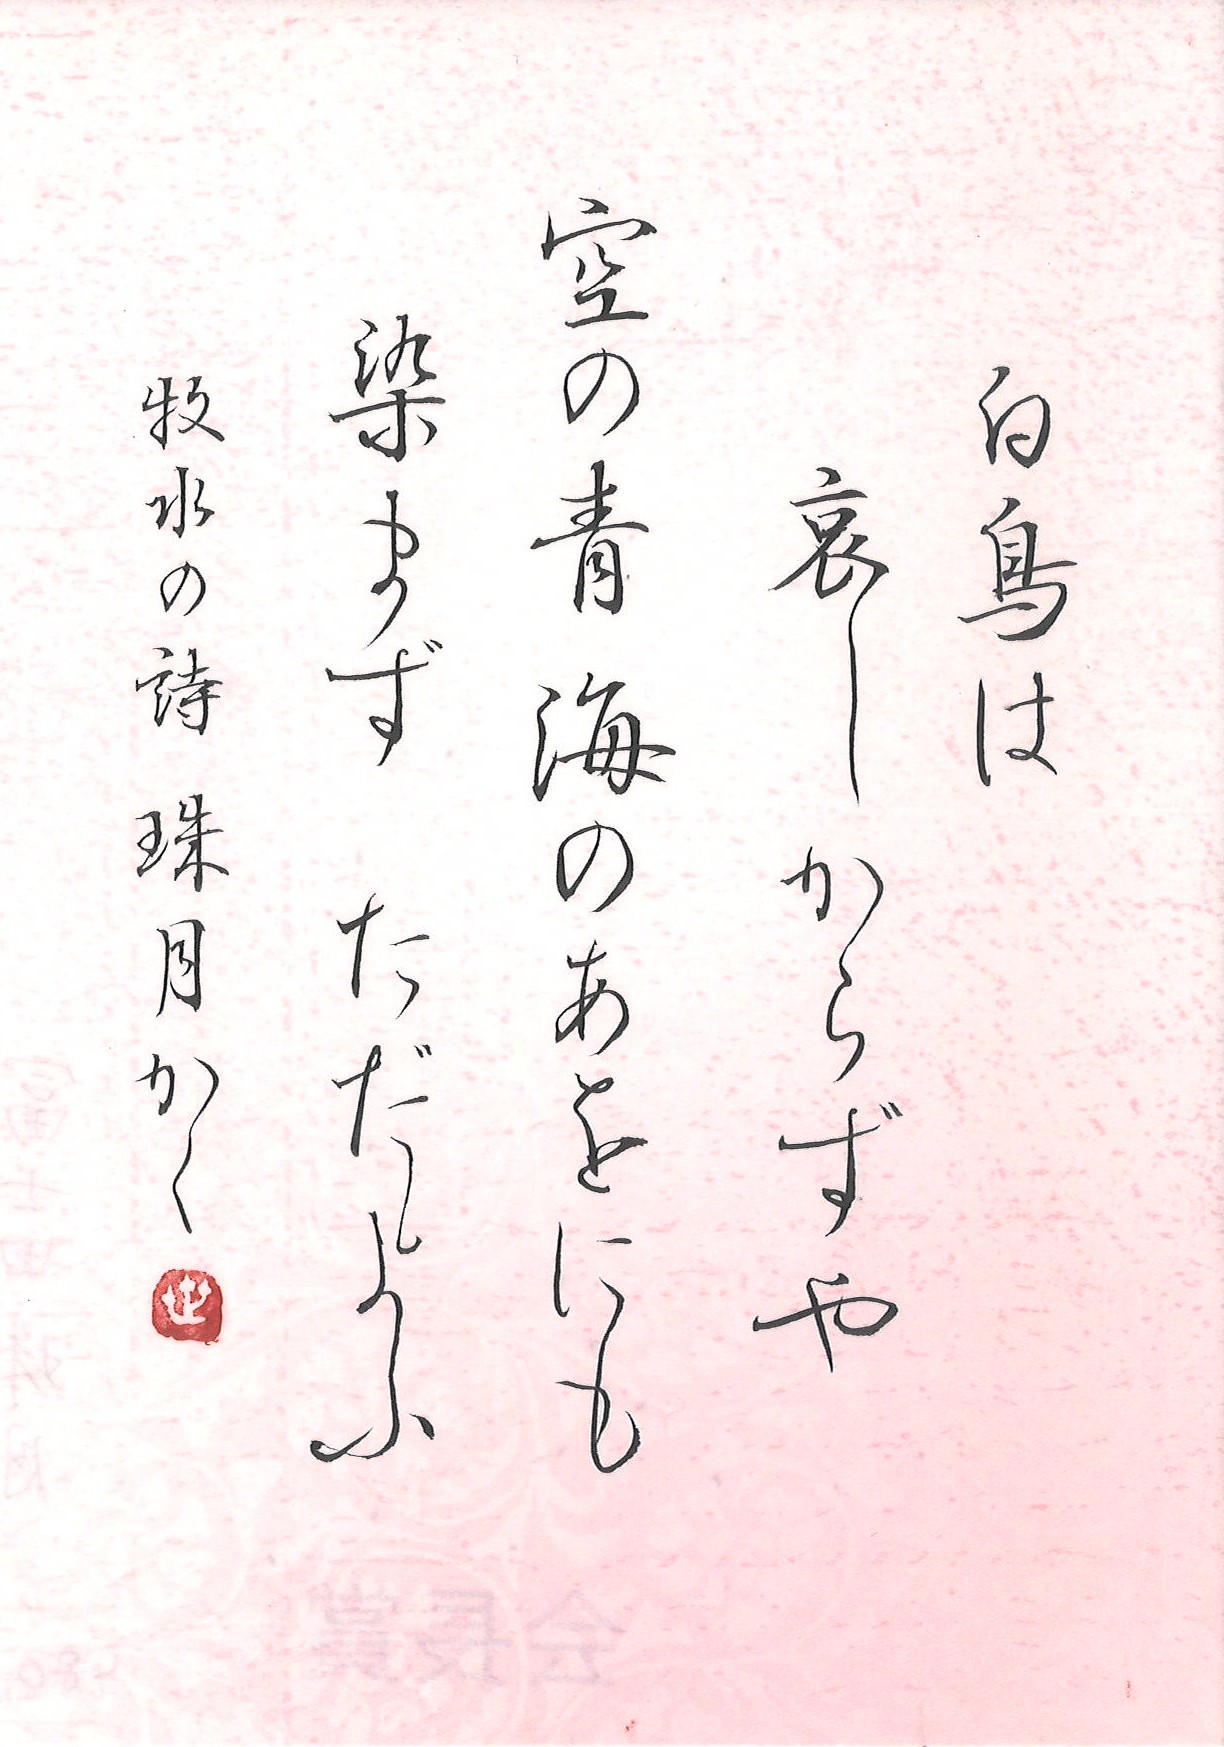 白鳥は
哀しからずや
空の青海のあをにも
染まず ただよふ
牧水の詩 珠月かく
会長賞